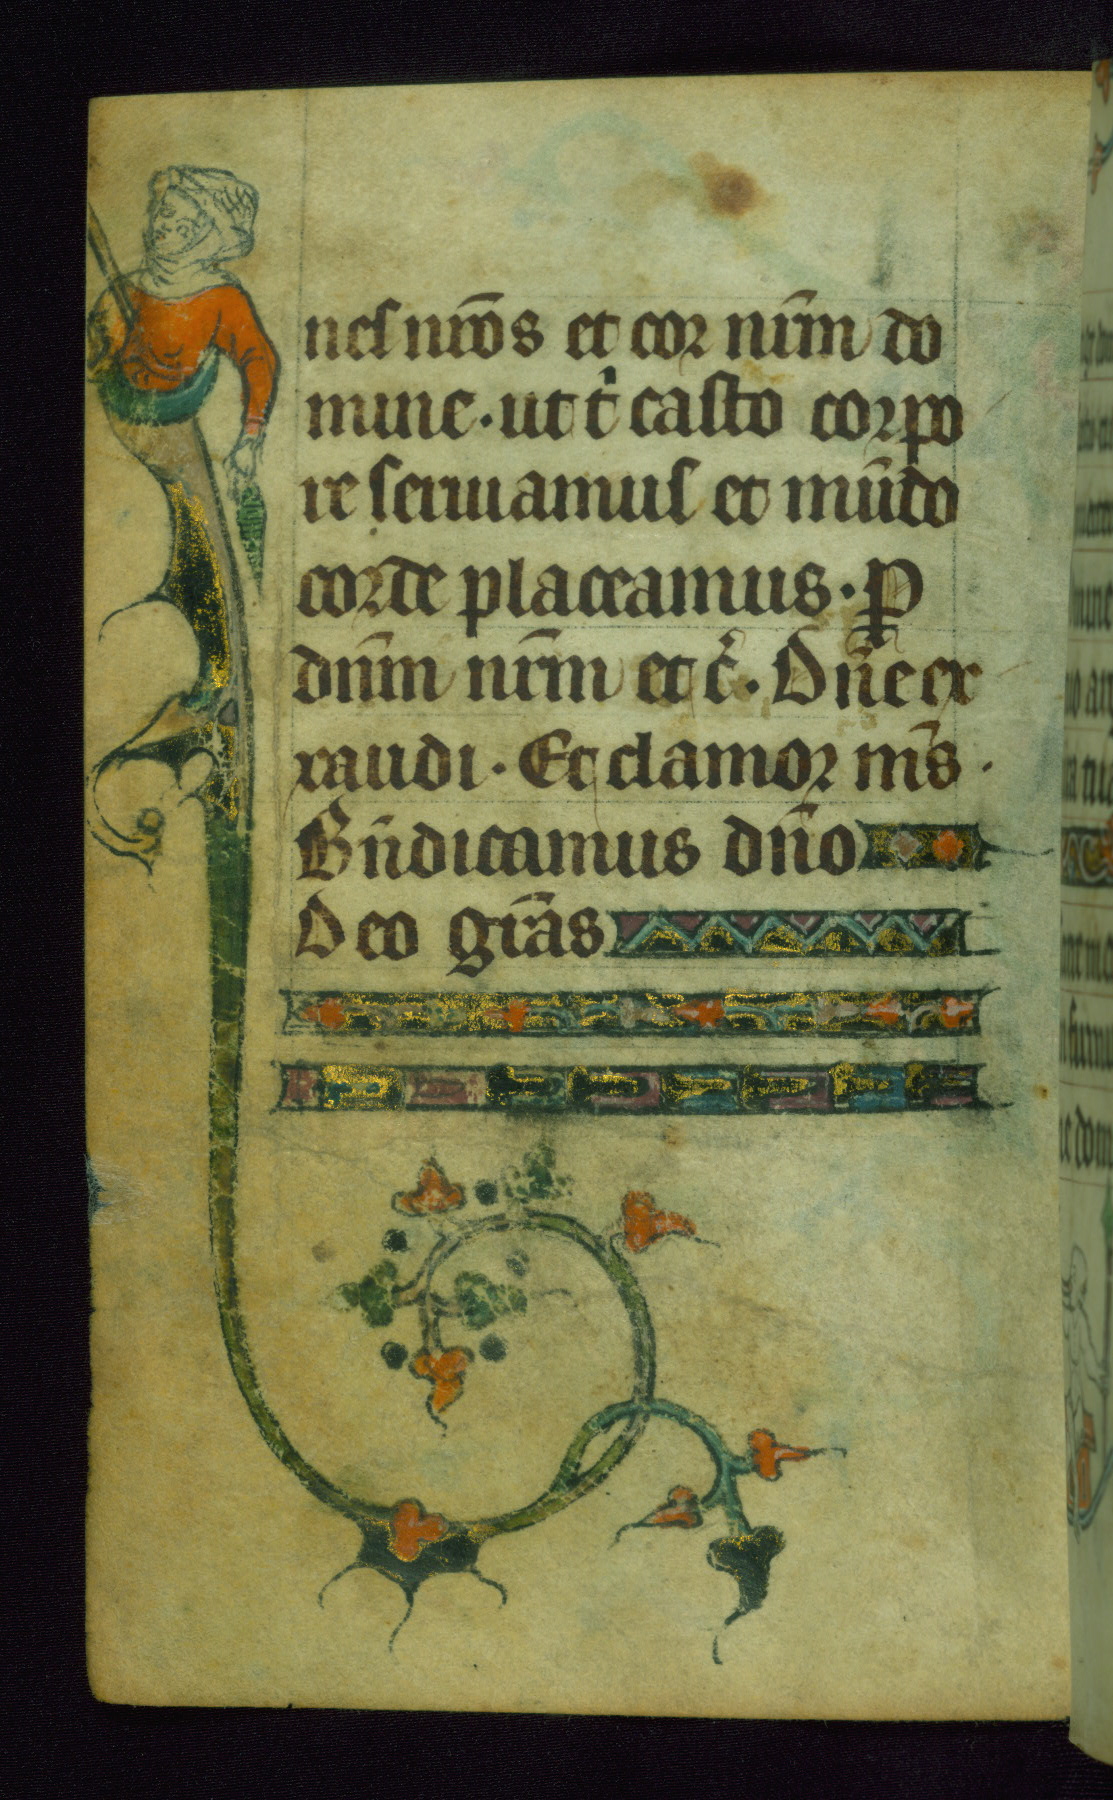 nes nr̄os et cor nr̄m do
mine · ut t͛ casto corpo
re seruiamus et mūdo
corde placeamus · P
dn̄m nr̄m et c͛ · Dn̄e ex
xaudi · Et clamor m̄s ·
Bn̄dicamus dn̄o
Deo gr̄as